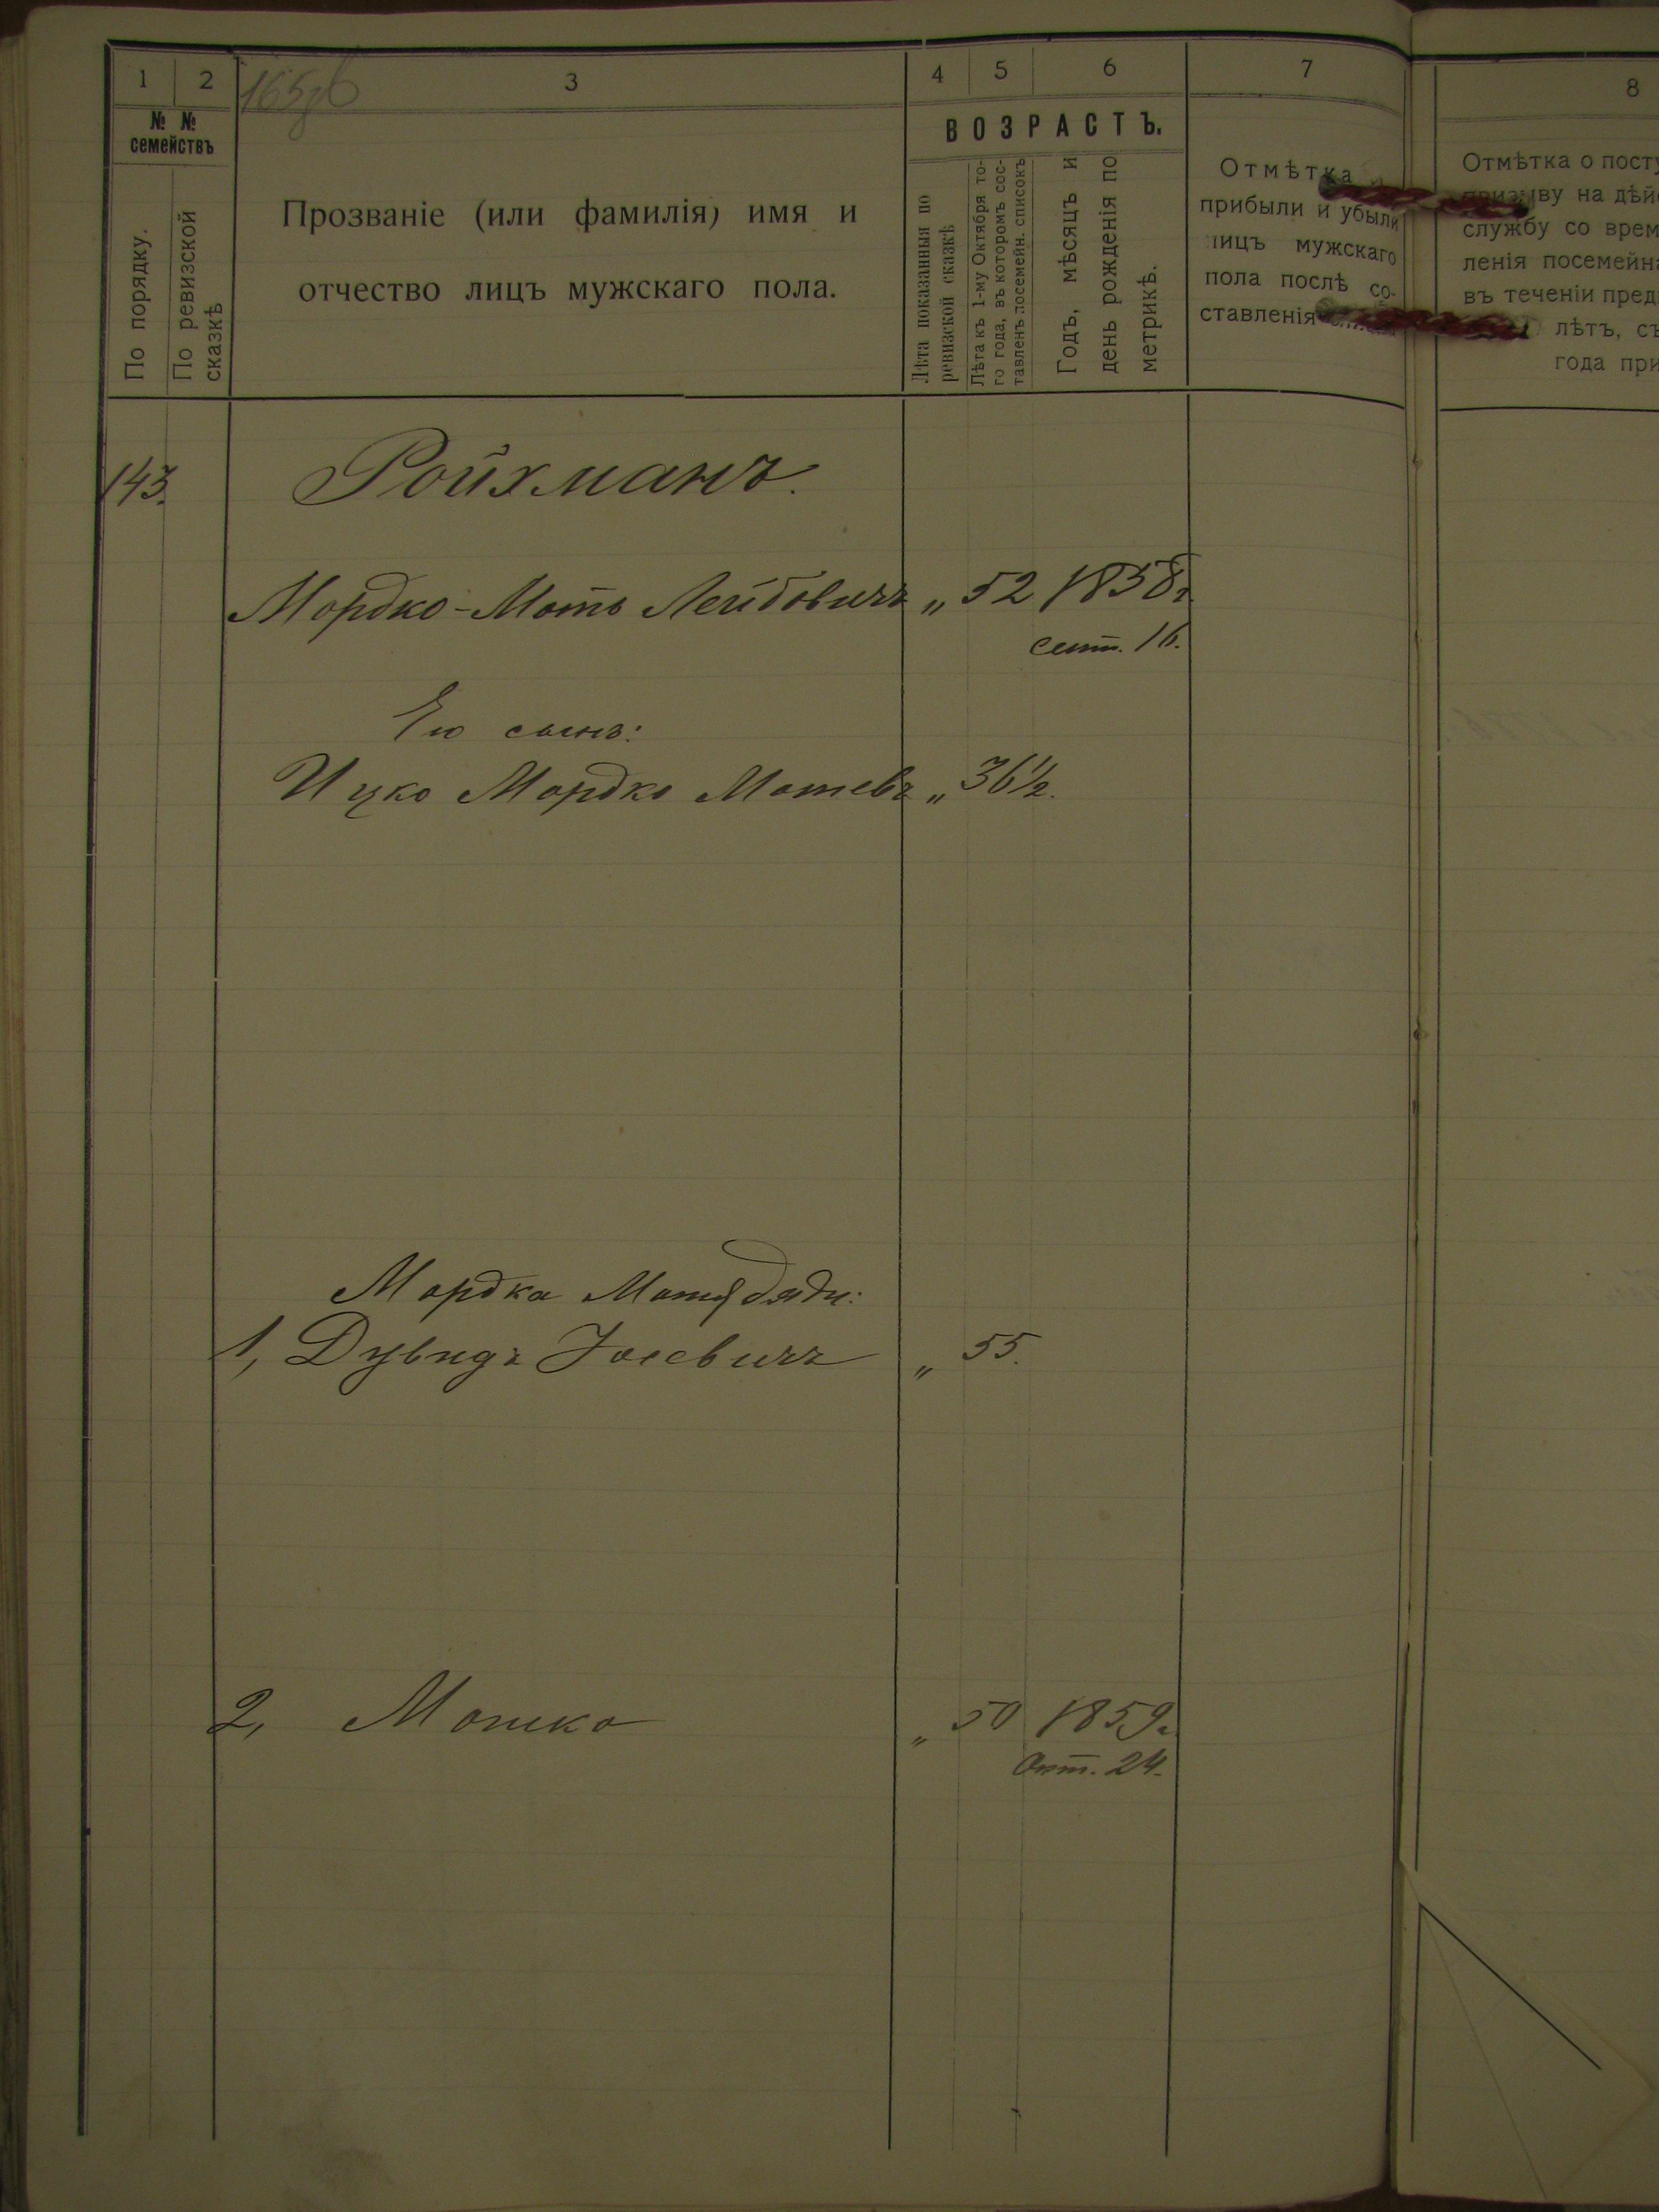 1 2 165об 3 4 5 6 7 8
№ №
семействъ
По порядку.
По ревизской
сказкѣ
Прозваніе (или фамилія) имя и
отчество лицъ мужскаго пола.
ВОЗРАСТЪ.
Лѣта показанныя по
ревизской сказкѣ
Лѣта къ 1-му Октября то-
го года, въ которомъ сос-
тавленъ посемейн. списокъ
Годъ, мѣсяцъ и
день рожденія по
метрикѣ.
Отмѣтка
прибыли и убыли
лицъ мужскаго
пола послѣ со-
ставленія
Отмѣтка о посту
призыву на дѣй
службу со врем
ленія посемейна
въ теченіи пред
лѣтъ, съ
года при
143. Ройхманъ.
Мордко-Моть Лейбовичъ „ 52 1858г.
сент. 16.
Его сынъ:
Ицко Мордко Мотевъ „ 36½.
Мордка Мотя дяди:
1, Дувидъ Іосевичъ „ 55.
2, Мошко „ 50 1859г.
Окт. 24.